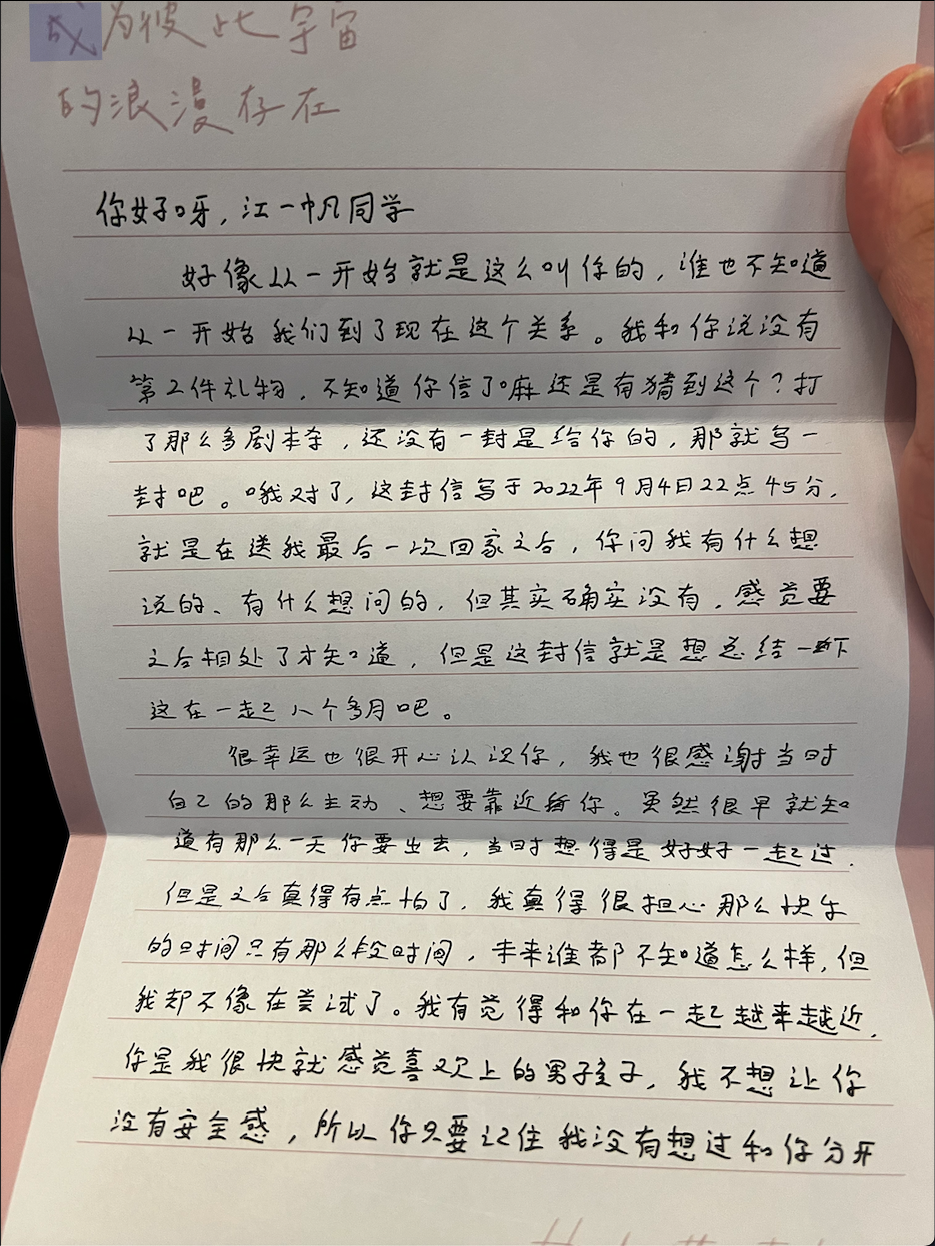 成为彼此宇宙
的浪漫存在
你好呀，江一帆同学
好像从一开始就是这么叫你的，谁也不知道
从一开始我们到了现在这个关系。我和你说没有
第2件礼物，不知道你信了嘛还是有猜到这个？打
了那么多剧本杀，还没有一封是给你的，那就写一
封吧。哦对了，这封信写于2022年9月4日22点45分，
就是在送我最后一次回家之后，你问我有什么想
说的、有什么想问的，但其实确实没有，感觉要
之后相处了才知道，但是这封信就是想总结一下
这在一起八个多月吧。
很幸运也很开心认识你，我也很感谢当时
自己的那么主动、想要靠近你。虽然很早就知
道有那么一天你要出去，当时想得是好好一起过，
但是之后真得有点怕了，我真得很担心那么快乐
的时间只有那么段时间，未来谁都不知道怎么样，但
我却不像在尝试了。我有觉得和你在一起越来越近，
你是我很快就感觉喜欢上的男孩子，我不想让你
没有安全感，所以你只要记住我没有想过和你分开